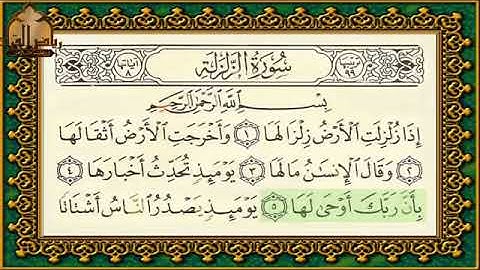 ترتيبها ٩٩ سُورَةُ الزَّلْزَلَةِ آياتها ٨
بِسْمِ ٱللَّهِ ٱلرَّحْمَٰنِ ٱلرَّحِيمِ
إِذَا زُلْزِلَتِ ٱلْأَرْضُ زِلْزَالَهَا ١ وَأَخْرَجَتِ ٱلْأَرْضُ أَثْقَالَهَا
٢ وَقَالَ ٱلْإِنسَٰنُ مَا لَهَا ٣ يَوْمَئِذٍ تُحَدِّثُ أَخْبَارَهَا ٤
بِأَنَّ رَبَّكَ أَوْحَىٰ لَهَا ٥ يَوْمَئِذٍ يَصْدُرُ ٱلنَّاسُ أَشْتَاتًا